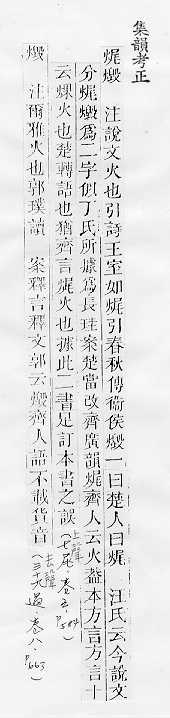 集韻考正
焜燬　注說文火也引詩王室如焜引春秋傳衞侯燬一曰楚人曰焜　汪氏云今說文
分焜燬爲二字似丁氏所據爲長珪案楚當改齊廣韻焜齊人云火葢本方言方言十
云煤火也楚轉語也猶齊言焜火也據此二書足訂本書之誤（上聲七尾·卷五·P.584）
燬　注爾雅火也郭璞讀　案釋言釋文郭云燬齊人語不載貨音（去聲三十九過·卷八·P.663）